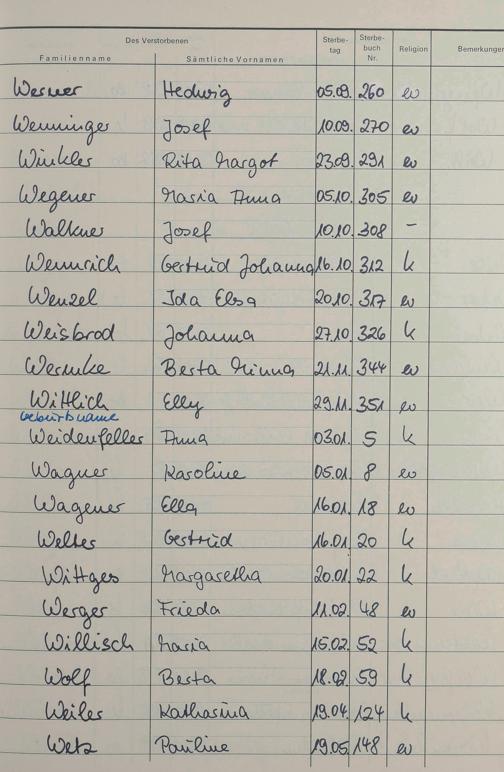 Des Verstorbenen Sterbe- Sterbe-
Familienname Sämtliche Vornamen tag buch Nr. Religion Bemerkungen
Werner Hedwig 05.09. 260 ev
Wenninger Josef 10.09. 270 ev
Winkler Rita Margot 23.09. 291 ev
Wegener Maria Anna 05.10. 305 ev
Walkner Josef 10.10. 308 –
Wennrich Gertrud Johanna 16.10. 312 k
Wenzel Ida Elsa 20.10. 317 ev
Weisbrod Johanna 27.10. 326 k
Wernke Berta Minna 21.11. 344 ev
Wittlich Elly 29.11. 351 ev
Geburtsname
Weidenfeller Anna 03.01. 5 k
Wagner Karoline 05.01. 8 ev
Wagener Ella 16.01. 18 ev
Welter Gertrud 16.01. 20 k
Wittges Margaretha 20.01. 22 k
Werger Frieda 11.02. 48 ev
Willisch Maria 15.02. 52 k
Wolf Berta 18.02. 59 k
Weiler Katharina 19.04. 124 k
Wetz Pauline 19.05. 148 ev